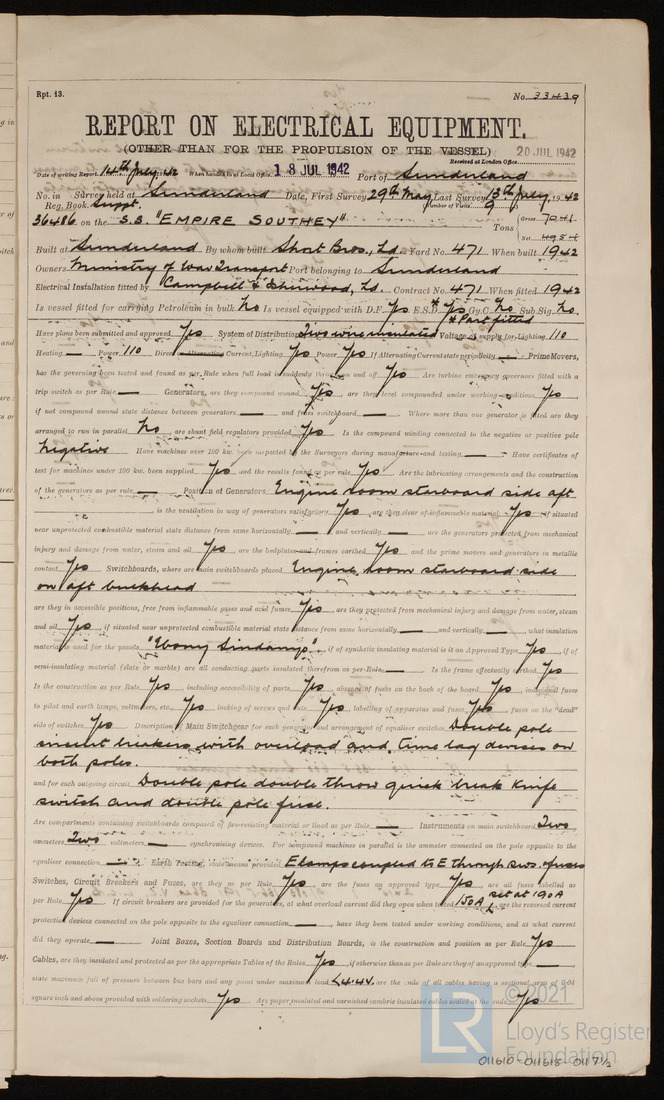 Rpt. 13. No. 33439
REPORT ON ELECTRICAL EQUIPMENT.
(OTHER THAN FOR THE PROPULSION OF THE VESSEL) 20 JUL 1942
Received at London Office
Date of writing Report 14th July, 42 When handed in at Local Office 18 JUL 1942 Port of Sunderland
No. in Survey held at Sunderland Date, First Survey 29th May Last Survey 13th July, 1942
Reg. Book. Suppt. Number of Visits 9
36486 on the S.S. "EMPIRE SOUTHEY" Tons Gross 7041 Net 4954
Built at Sunderland By whom built Short Bros., Ld. Yard No. 471 When built 1942
Owners Ministry of War Transport Port belonging to Sunderland
Electrical Installation fitted by Campbell & Isherwood, Ld. Contract No. 471 When fitted 1942
Is vessel fitted for carrying Petroleum in bulk No Is vessel equipped with D.F. Yes E.S.D. * Yes Gy.C. No Sub.Sig. No.
* Part fitted
Have plans been submitted and approved Yes System of Distribution Two wire insulated Voltage of supply for Lighting 110
Heating — Power 110 Direct or Alternating Current, Lighting Yes Power Yes If Alternating Current state periodicity — Prime Movers,
has the governing been tested and found as per Rule when full load is suddenly thrown on and off Yes Are turbine emergency governors fitted with a
trip switch as per Rule — Generators, are they compound wound Yes are they level compounded under working conditions Yes
if not compound wound state distance between generators — and from switchboard — Where more than one generator is fitted are they
arranged to run in parallel No are shunt field regulators provided Yes Is the compound winding connected to the negative or positive pole
Negative Have machines over 100 kw. been inspected by the Surveyors during manufacture and testing — Have certificates of
test for machines under 100 kw. been supplied Yes and the results found as per rule Yes Are the lubricating arrangements and the construction
of the generators as per rule — Position of Generators Engine room starboard side aft
is the ventilation in way of generators satisfactory Yes are they clear of inflammable material Yes if situated
near unprotected combustible material state distance from same horizontally — and vertically — are the generators protected from mechanical
injury and damage from water, steam and oil Yes are the bedplates and frames earthed Yes and the prime movers and generators in metallic
contact Yes Switchboards, where are main switchboards placed Engine room starboard side
on aft bulkhead
are they in accessible positions, free from inflammable gases and acid fumes Yes are they protected from mechanical injury and damage from water, steam
and oil Yes if situated near unprotected combustible material state distance from same horizontally — and vertically — what insulation
material is used for the panels "Ebony Sindanyo" if of synthetic insulating material is it an Approved Type Yes if of
semi-insulating material (slate or marble) are all conducting parts insulated therefrom as per Rule — Is the frame effectually earthed Yes
Is the construction as per Rule Yes including accessibility of parts Yes absence of fuses on the back of the board Yes individual fuses
to pilot and earth lamps, voltmeters, etc. Yes locking of screws and nuts Yes labelling of apparatus and fuses Yes fuses on the "dead"
side of switches Yes Description of Main Switchgear for each generator and arrangement of equaliser switches Double pole
circuit breakers with overload and time lag devices on
both poles.
and for each outgoing circuit Double pole double throw quick break knife
switch and double pole fuse.
Are compartments containing switchboards composed of fire-resisting material or lined as per Rule — Instruments on main switchboard Two
ammeters Two voltmeters — synchronising devices. For compound machines in parallel is the ammeter connected on the pole opposite to the
equaliser connection — Earth Testing, state means provided E lamps coupled to E through sws. & fuses
Switches, Circuit Breakers and Fuses, are they as per Rule Yes are the fuses an approved type Yes are all fuses labelled as
per Rule Yes If circuit breakers are provided for the generators, at what overload current did they open when tested 150A set at 190A are the reversed current
protection devices connected on the pole opposite to the equaliser connection — have they been tested under working conditions, and at what current
did they operate — Joint Boxes, Section Boards and Distribution Boards, is the construction and position as per Rule Yes
Cables, are they insulated and protected as per the appropriate Tables of the Rules Yes if otherwise than as per Rule are they of an approved type —
state maximum fall of pressure between bus bars and any point under maximum load <4.4V. are the ends of all cables having a sectional area of 0·04
square inch and above provided with soldering sockets Yes Are paper insulated and varnished cambric insulated cables sealed at the ends Yes
© 2021
LR
Lloyd's Register
Foundation
011610-011618-0117½